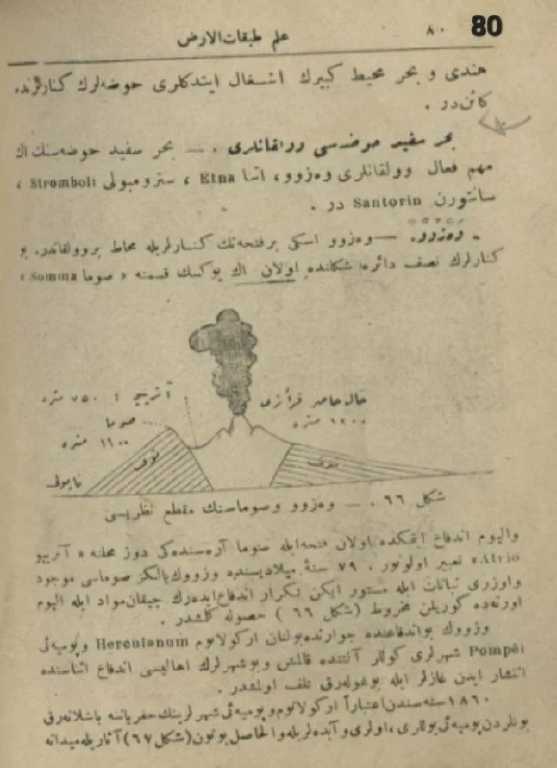 علم طبقات الارض ٨٠ 80
هندی و بحر محیط کبیرك اشغال ایتدکلری حوضه‌لرك کنارلرنده
کائن‌در .
بحر سفید حوضه‌سی وولقانلری . — بحر سفید حوضه‌سنك اك
مهم فعال وولقانلری وه‌زوو ، اتنا Etna ، سترومبولی Stromboli ،
سانتورن Santorin در .
وه‌زوو . — وه‌زوو اسکی برفتحه‌نك کنارلریله محاط بروولقاندر. بو
کنارلرك نصف دائره شکلنده اولان اك یوکسك قسمنه « صوما Somma »
آتریو : ٧٥٠ متره
حال حاضر قراتری
١٢٠٠ متره
صوما
١١٠٠ متره
توف
توف
ناپولی
شکل ٦٦ . — وه‌زوو وصوماسنك مقطع نظریسی
والیوم اندفاع ایتمکده اولان فتحه‌ایله صوما آره‌سنده‌کی دوز محله « آتریو
Atrio » تعبیر اولونور . ٧٩ سنهٔ میلادیسنده وزووك یالکز صوماسی موجود
واوزری نباتات ایله مستور ایکن تکرار اندفاع ایده‌رك چیقان مواد ایله الیوم
اورته‌ده کوریلن مخروط (شکل ٦٦) حصوله کلمشدر .
وزووك بواندفاعنده جوارنده بولنان ارکولانوم Herculanum وپومپه‌ئی
Pompéi شهرلری کوللر آلتنده قالمش وبو شهرلرك اهالیسی اندفاع اثناسنده
انتشار ایدن غازلر ایله بوغوله‌رق تلف اولمشدر .
١٨٦٠ سنه‌سندن اعتباراً ارکولانوم وپومپه‌ئی شهرلرینك حفریاتنه باشلانه‌رق
بونلردن پومپه‌ئی یوللری ، اولری وآبده‌لریله والحاصل بوتون (شکل ٦٧) آثاریله میدانه